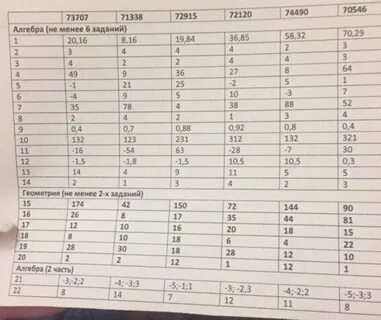 73707 71338 72915 72120 74490 70546
Алгебра (не менее 6 заданий)
1 20,16 8,16 19,84 36,85 58,32 70,29
2 3 4 4 4 2 3
3 4 2 2 4 3 3
4 49 9 36 27 8 64
5 -1 21 25 -2 5 1
6 -4 9 5 10 -3 7
7 35 78 4 38 88 52
8 2 4 2 1 2 4
9 0,4 0,7 0,88 0,92 0,8 0,4
10 132 123 231 312 132 321
11 -16 -54 63 -28 -7 30
12 -1,5 -1,8 -1,5 10,5 10,5 0,3
13 14 4 9 11 5
14 2 1 3 4 2 3
Геометрия (не менее 2-х заданий)
15 174 42 150 72 144 90
16 26 8 17 35 44 81
17 12 10 16 20 18 15
18 8 10 18 6 4 22
19 28 30 18 4 12 10
20 2 2 12 1 12 1
Алгебра (2 часть)
21 -3;-2;2 -4; -3;3 -5;-1;1 -3; -2,3 -4;-2;2 -5;-3;3
22 8 14 7 12 11 8